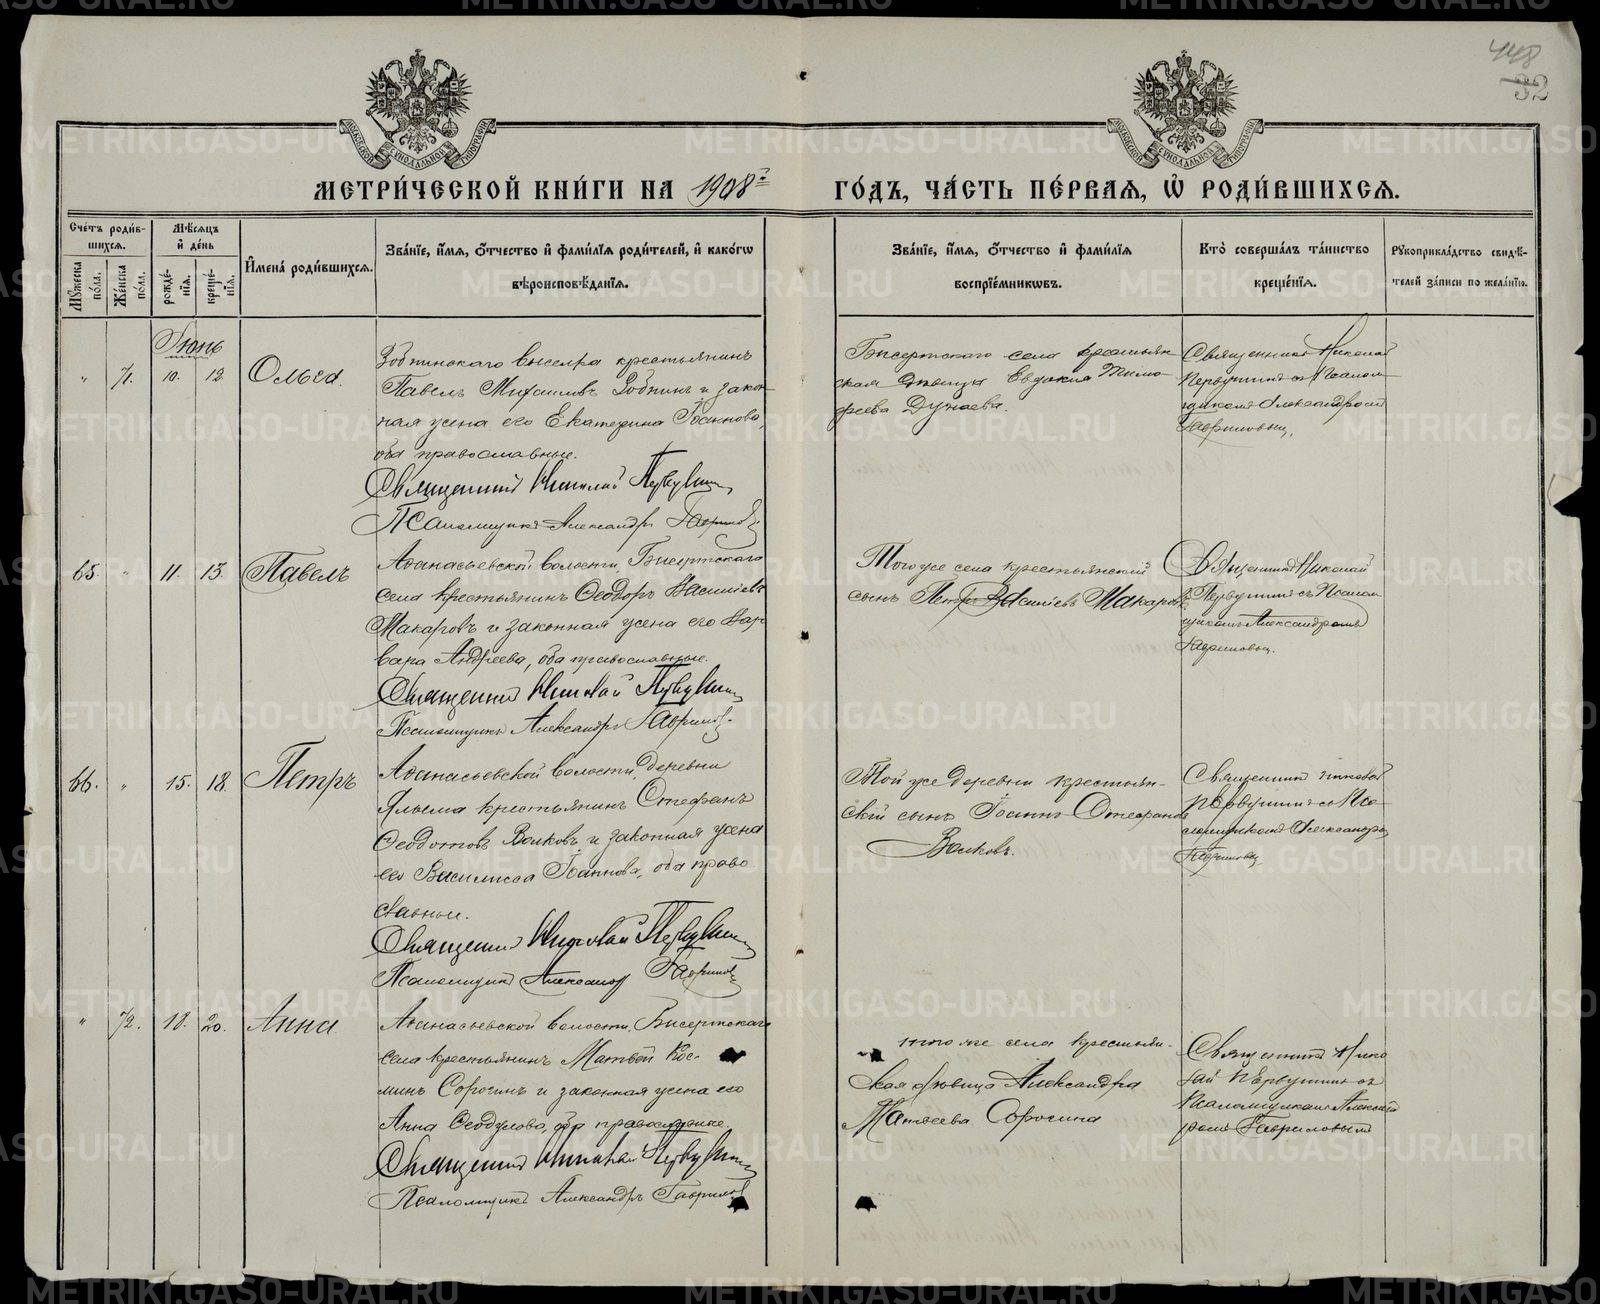 448
32
МЕТРИ́ЧЕСКОЙ КНИ́ГИ НА 1908й ГО́ДЪ, ЧА́СТЬ ПЕ́РВАЯ, Ѡ РОДИ́ВШИХСЯ.
Сче́тъ роди́вшихся.
Му́жеска по́ла.
Же́нска по́ла.
Мѣ́сяцъ и де́нь
рожде́нія.
креще́нія.
Имена̀ роди́вшихся.
Зва́ніе, и́мя, о́тчество и фами́лія роди́телей, и како́гѡ
вѣроисповѣ́данія.
Зва́ніе, и́мя, о́тчество и фами́лія
воспріе́мникѡвъ.
Кто̀ соверша́лъ та́инство
креще́нія.
Рукоприкла́дство свидѣ́телей за́писи по жела́нію.
Іюнь
" 71. 10. 12. Ольга.
крестьянинъ
Павелъ Михаиловъ и закон
ная жена его Екатерина Іоаннова,
оба православные.
Священникъ Николай Первушинъ
Псаломщикъ Александръ Гавриловъ
Бисертского села крестьян
ская дѣвица Евдокия Тимо
феева Дунаева.
Священникъ Николай
Первушинъ съ Псалом
щикомъ Александромъ
Гавриловымъ.
65. " 11. 13. Павелъ
Афанасьевской волости, Бисертскаго
села крестьянинъ Ѳеодоръ Васильевъ
Макаровъ и законная жена его Вар
вара Андреева, оба православные.
Священникъ Николай Первушинъ
Псаломщикъ Александръ Гавриловъ.
Того же села крестьянский
сынъ Петръ Васильевъ Макаровъ
Священникъ Николай
Первушинъ съ Псалом
щикомъ Александромъ
Гавриловым.
66. " 15. 18. Петръ
Афанасьевской волости, деревни
крестьянинъ Стефанъ
Ѳеодотовъ Волковъ и законная жена
его Василисса Іоаннова, оба право
славные.
Священникъ Николай Первушинъ
Псаломщикъ Александръ Гавриловъ
Той же деревни крестьян-
ский сынъ Іоаннъ Стефановъ
Волковъ.
Священникъ Николай
Первушинъ съ Пса-
ломщикомъ Александромъ
Гавриловым
" 72. 18. 20. Анна
Афанасьевской волости, Бисертскаго
села крестьянинъ Матвей Кос-
минъ Сорогинъ и законная жена его
Анна Ѳеодулова, оба православные.
Священникъ Николай Первушинъ
Псаломщикъ Александръ Гавриловъ
того же села крестьян-
ская дѣвица Александра
Матвеева Сорогина
Священникъ Нико
лай Первушинъ съ
Псаломщикомъ Александ
ромъ Гавриловымъ
METRIKI.GASO-URAL.RU